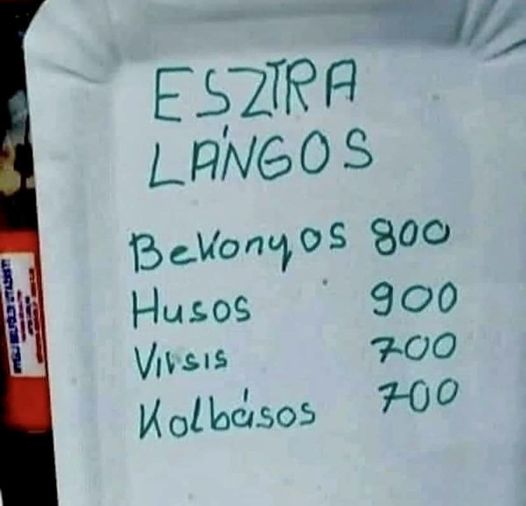 ESZTRA
LÁNGOS
Bekonyos 800
Husos 900
Virsis 700
Kolbásos 700